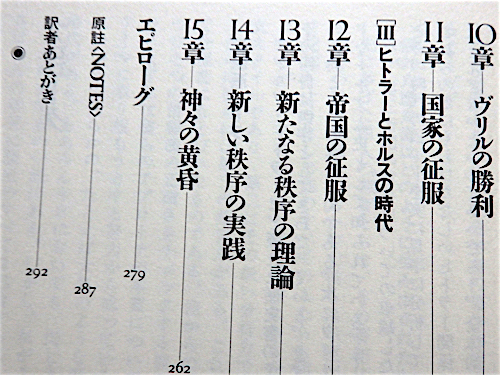 10章 ヴリルの勝利
11章 国家の征服
[III] ヒトラーとホルスの時代
12章 帝国の征服
13章 新たなる秩序の理論
14章 新しい秩序の実践
15章 神々の黄昏 262
エピローグ 279
原註〈NOTES〉 287
訳者あとがき 292